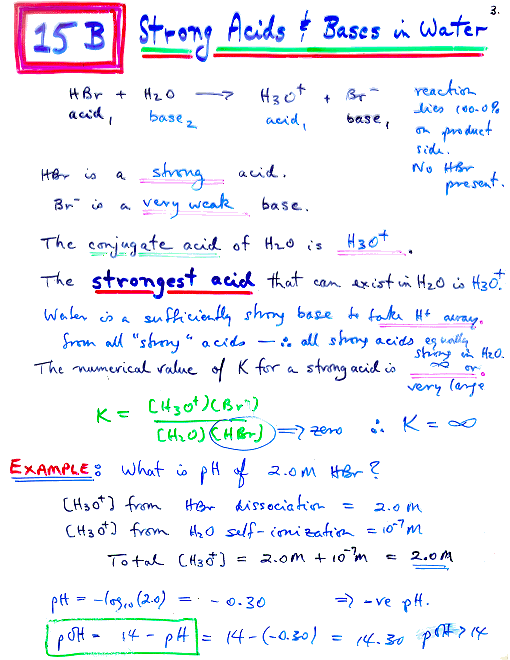 3.
15B Strong Acids & Bases in Water
HBr + H₂O ⟶ H₃O⁺ + Br⁻
acid₁ base₂ acid₁ base₁
reaction
lies 100.0%
on product
side.
No HBr
present.
HBr is a strong acid.
Br⁻ is a very weak base.
The conjugate acid of H₂O is H₃O⁺.
The strongest acid that can exist in H₂O is H₃O⁺.
Water is a sufficiently strong base to take H⁺ away.
from all "strong" acids — ∴ all strong acids equally
strong in H₂O.
The numerical value of K for a strong acid is ∞ or
very large
K = [H₃O⁺)(Br⁻) / [H₂O)(HBr) ⇒ zero ∴ K = ∞
EXAMPLE: What is pH of 2.0M HBr?
[H₃O⁺] from HBr dissociation = 2.0M
[H₃O⁺] from H₂O self-ionization = 10⁻⁷M
Total [H₃O⁺] = 2.0M + 10⁻⁷M = 2.0M
pH = -log₁₀(2.0) = -0.30 ⇒ -ve pH.
pOH = 14 - pH = 14-(-0.30) = 14.30 pOH > 14